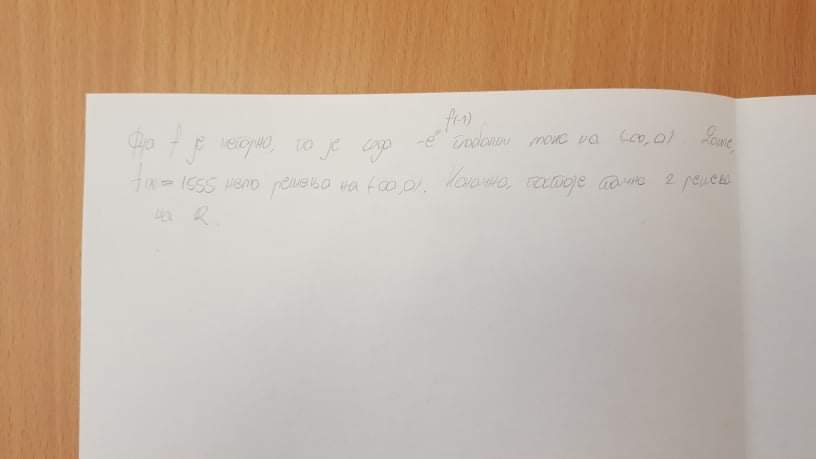 f(-1)
Фја f је непарна, па је сада -e глобални макс на (-∞,0) Дакле,
f(x) = 1555 нема решења на (-∞,0). Коначно, постоје тачно 2 решења
на R.